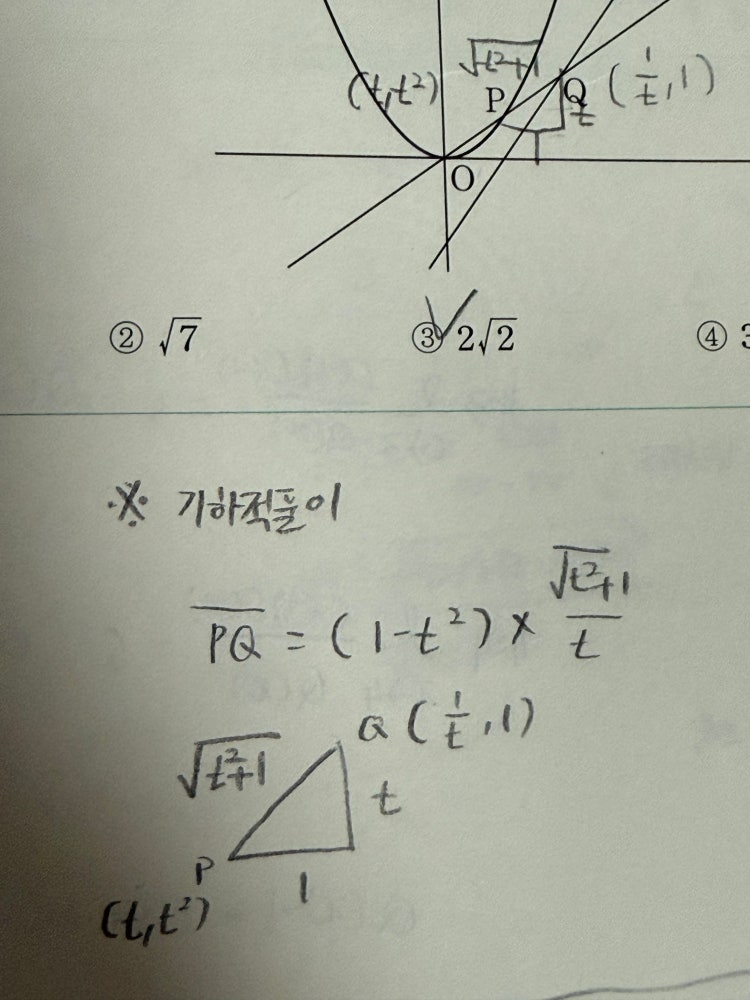 √t²+1
(t,t²) P Q (1/t, 1)
t
O
② √7 ③ 2√2 ④ 3
※ 기하적풀이
PQ = (1-t²) × √t²+1/t
Q (1/t, 1)
√t²+1
t
P
1
(t,t²)